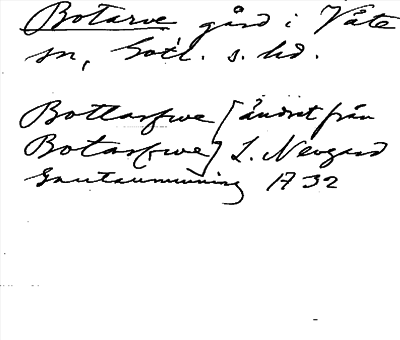 Botarve gård i Väte
sn, Gotl. s. hd.
Bottarfwe [ändret från
Botarfwe] L. Neogard
Gautauminning 1732